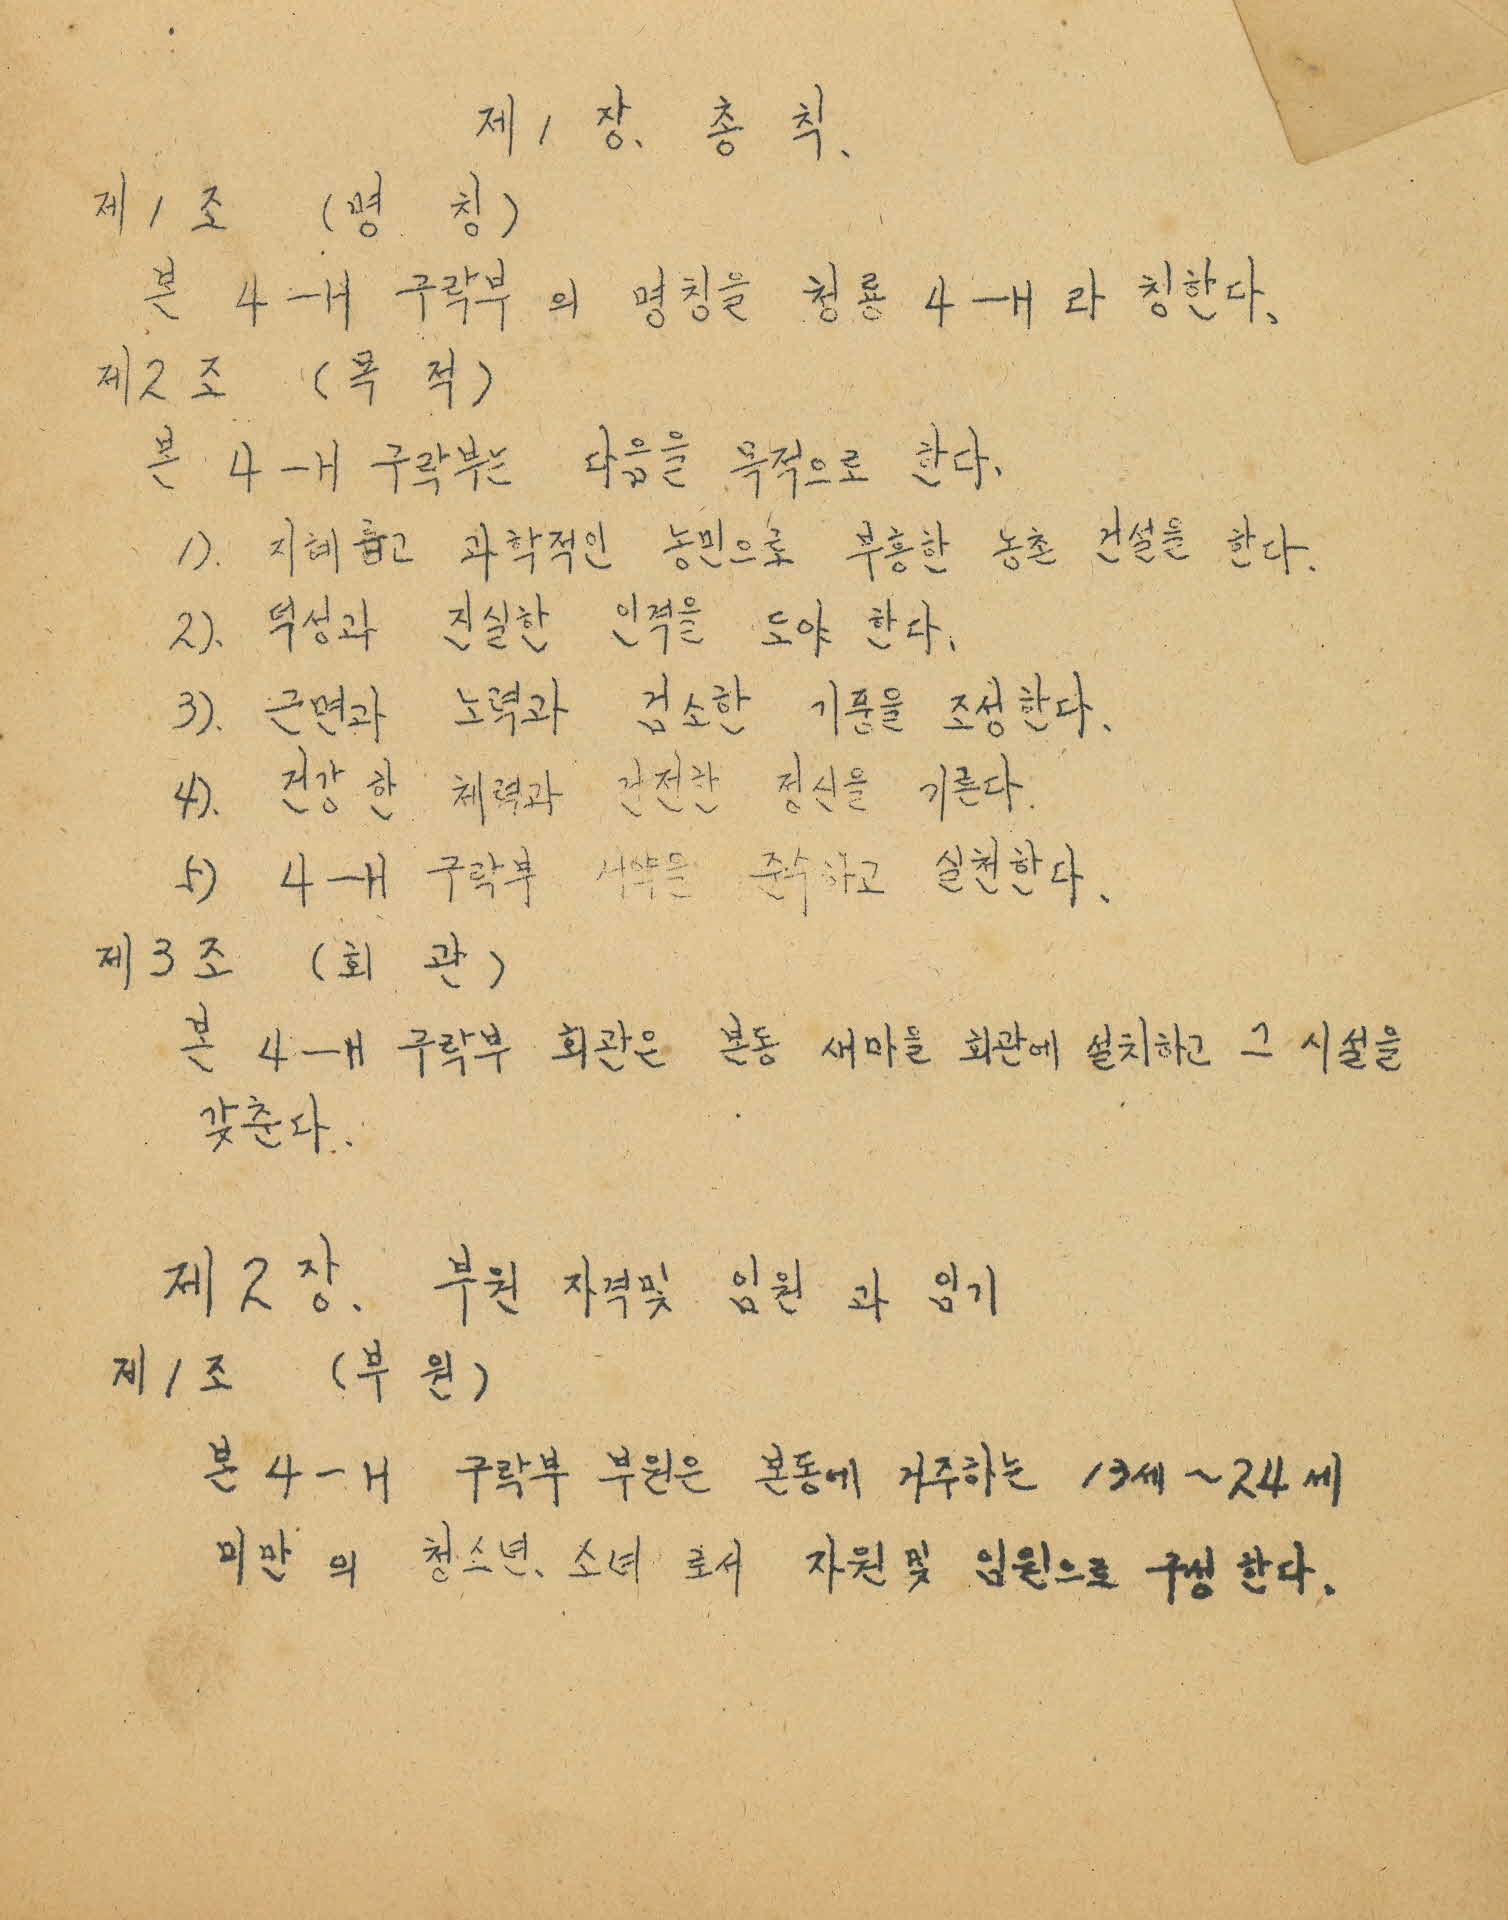 제1장. 총칙.
제1조 (명 칭)
본 4-H 구락부의 명칭을 청룡 4-H라 칭한다.
제2조 (목 적)
본 4-H 구락부는 다음을 목적으로 한다.
1). 지혜롭고 과학적인 농민으로 부흥한 농촌 건설을 한다.
2). 덕성과 진실한 인격을 도야 한다.
3). 근면과 노력과 검소한 기품을 조성한다.
4). 건강한 체력과 건전한 정신을 기른다.
5) 4-H 구락부 서약을 준수하고 실천한다.
제3조 (회 관)
본 4-H 구락부 회관은 본동 새마을 회관에 설치하고 그 시설을
갖춘다.
제2장. 부원 자격및 임원과 임기
제1조 (부원)
본 4-H 구락부 부원은 본동에 거주하는 13세~24세
미만의 청소년、소녀로서 자원및 임원으로 구성한다.